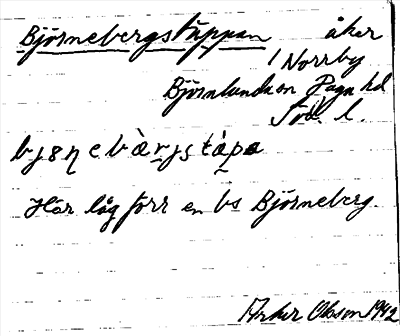 Björnebergstäppan åker
i Norrby
Björnlundasn Daga hd
Söd. l.
bjɵṇebæ̀rjstápa
Här låg förr en bs Björneberg.
Olsson 1942